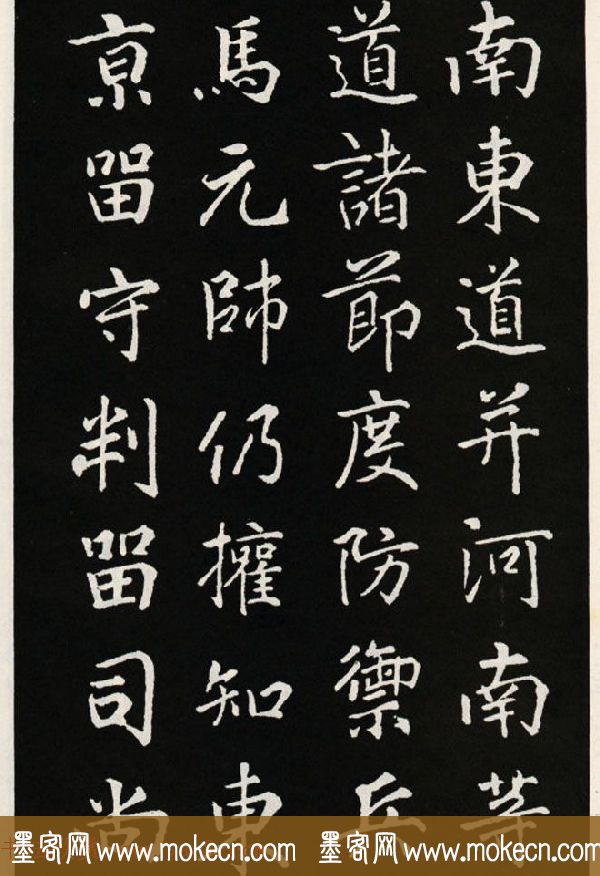 南東道并河南等
道諸節度防禦兵
馬元帥仍攉知東
京留守判留司尚
墨客网 www.mokecn.com 墨客网 www.mokecn.com